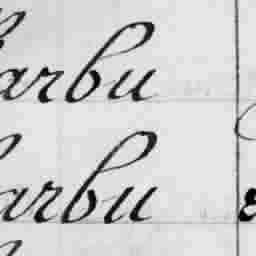 arbu
arbu